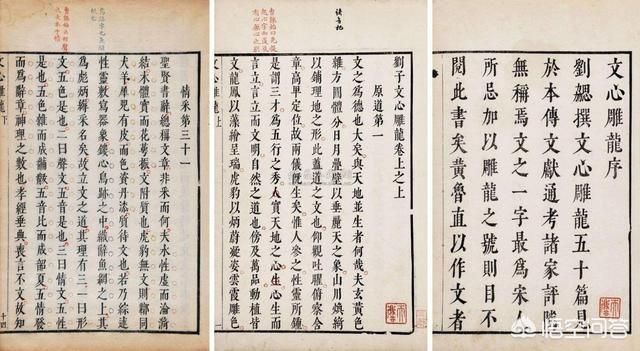 文心雕龍序
劉勰撰文心雕龍五十篇見
於本傳文獻通考諸家評隲
無稱焉文之一字最爲宋
所忌加以雕龍之號則目不
閱此書矣黃魯直以作文者
劉子文心雕龍卷上之上
原道第一
文之爲德也大矣與天地並生者何哉夫玄黃色
雜方圓體分日月疊璧以垂麗天之象山川煥綺
以鋪理地之形此蓋道之文也仰觀吐曜俯察含
章高卑定位故兩儀既生矣惟人參之性靈所鍾
是謂三才爲五行之秀人實天地之心生心生而
言立言立而文明自然之道也傍及萬品動植皆
文龍鳳以藻繪呈瑞虎豹以炳蔚凝姿雲霞雕色
文心雕龍上
情采第三十一
聖賢書辭總稱文章非采而何夫水性虛而淪漪
結木體實而花萼振文附質也虎豹無文則鞹同
犬羊犀兕有皮而色資丹漆質待文也若乃綜述
性靈敷寫器象鏤心鳥跡之中織辭魚網之上其
爲彪炳縟采名矣故立文之道其理有三一曰形
文五色是也二曰聲文五音是也三曰情文五性
是也五色雜而成黼黻五音比而成韶夏五情發
而爲辭章神理之數也孝經垂典喪言不文故知
文心雕龍下
十四
悟空问答